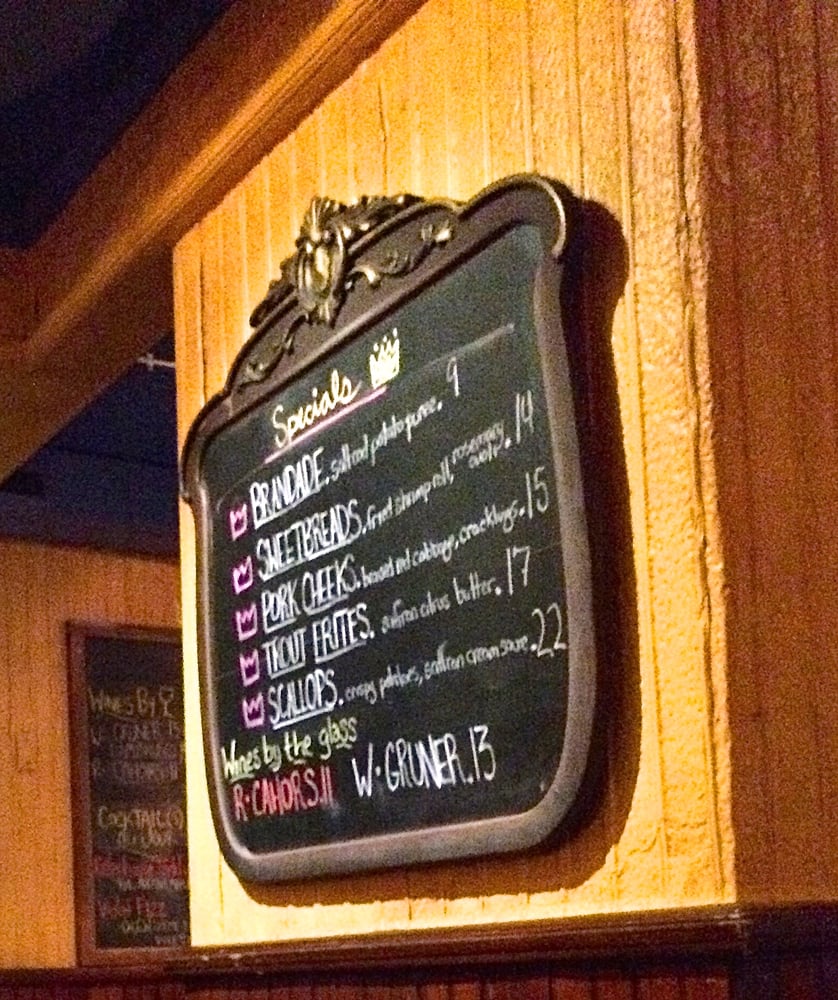 Specials
BRANDADE. salt cod potato puree. 9
SWEETBREADS. fried shrimp roll, rosemary aioli. 14
PORK CHEEKS. braised red cabbage, cracklings. 15
TROUT FRITES. saffron citrus butter. 17
SCALLOPS. crispy potatoes, saffron cream sauce. 22
Wines by the glass
R•CAHORS.11 W•GRUNER.13
WINES BY
W GRUNER 13
R CAHORS 11
COCKTAIL(S)